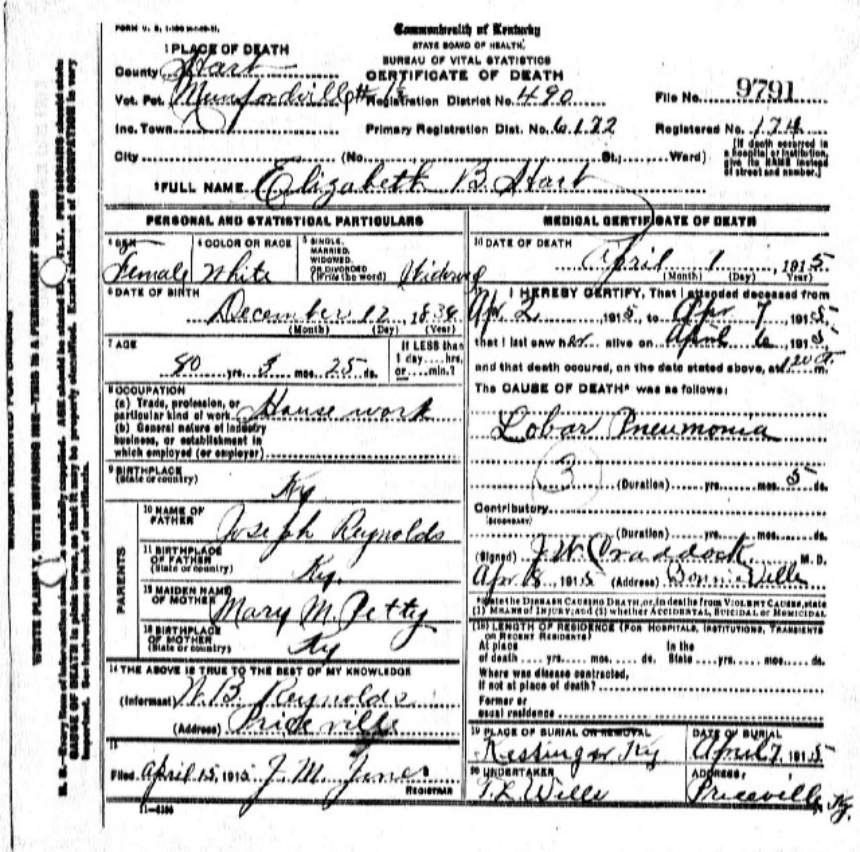 Commonwealth of Kentucky
STATE BOARD OF HEALTH.
BUREAU OF VITAL STATISTICS
CERTIFICATE OF DEATH
1 PLACE OF DEATH
County Hart
Vot. Pct. Munfordville #1 Registration District No. 490 File No. 9791
Inc. Town Primary Registration Dist. No. 6172 Registered No. 174
City (No. St.; Ward) [If death occurred in a hospital or institution, give its NAME instead of street and number.]
2 FULL NAME Elizabeth B. Hart
PERSONAL AND STATISTICAL PARTICULARS
3 SEX Female
4 COLOR OR RACE White
5 SINGLE, MARRIED, WIDOWED, OR DIVORCED (Write the word) Widowed
6 DATE OF BIRTH
December 12, 1834
(Month) (Day) (Year)
7 AGE
80 yrs. 3 mos. 25 ds.
If LESS than 1 day....hrs. or....min.?
8 OCCUPATION
(a) Trade, profession, or particular kind of work House work
(b) General nature of industry business, or establishment in which employed (or employer)
9 BIRTHPLACE
(State or country) Ky
PARENTS
10 NAME OF FATHER Joseph Reynolds
11 BIRTHPLACE OF FATHER (State or country) Ky.
12 MAIDEN NAME OF MOTHER Mary M. Petty
13 BIRTHPLACE OF MOTHER (State or country) Ky
14 THE ABOVE IS TRUE TO THE BEST OF MY KNOWLEDGE
(Informant) W. B. Reynolds
(Address) Priceville
15
Filed April 15, 1915 J. M. Jones
REGISTRAR
11-3184
MEDICAL CERTIFICATE OF DEATH
16 DATE OF DEATH
April 1, 1915
(Month) (Day) (Year)
17 I HEREBY CERTIFY, That I attended deceased from
Apr. 2 1915, to Apr 7, 1915
that I last saw her alive on April 6, 1915,
and that death occured, on the date stated above, at m.
The CAUSE OF DEATH* was as follows:
Lobar Pneumonia
3
(Duration) yrs. mos. 5 ds.
Contributory
(SECONDARY)
(Duration) yrs. mos. ds.
(Signed) J. W. Craddock M. D.
Apr 8, 1915 (Address) Bonnieville
*State the DISEASE CAUSING DEATH, or, in deaths from VIOLENT CAUSES, state
(1) MEANS OF INJURY; and (2) whether ACCIDENTAL, SUICIDAL or HOMICIDAL
(18) LENGTH OF RESIDENCE (FOR HOSPITALS, INSTITUTIONS, TRANSIENTS OR RECENT RESIDENTS)
At place of death yrs. mos. ds. In the State yrs. mos. ds.
Where was disease contracted,
If not at place of death?
Former or
usual residence
19 PLACE OF BURIAL OR REMOVAL
Kessinger Ky
DATE OF BURIAL
April 7, 1915
20 UNDERTAKER
T. L. Wells
ADDRESS,
Priceville, Ky.